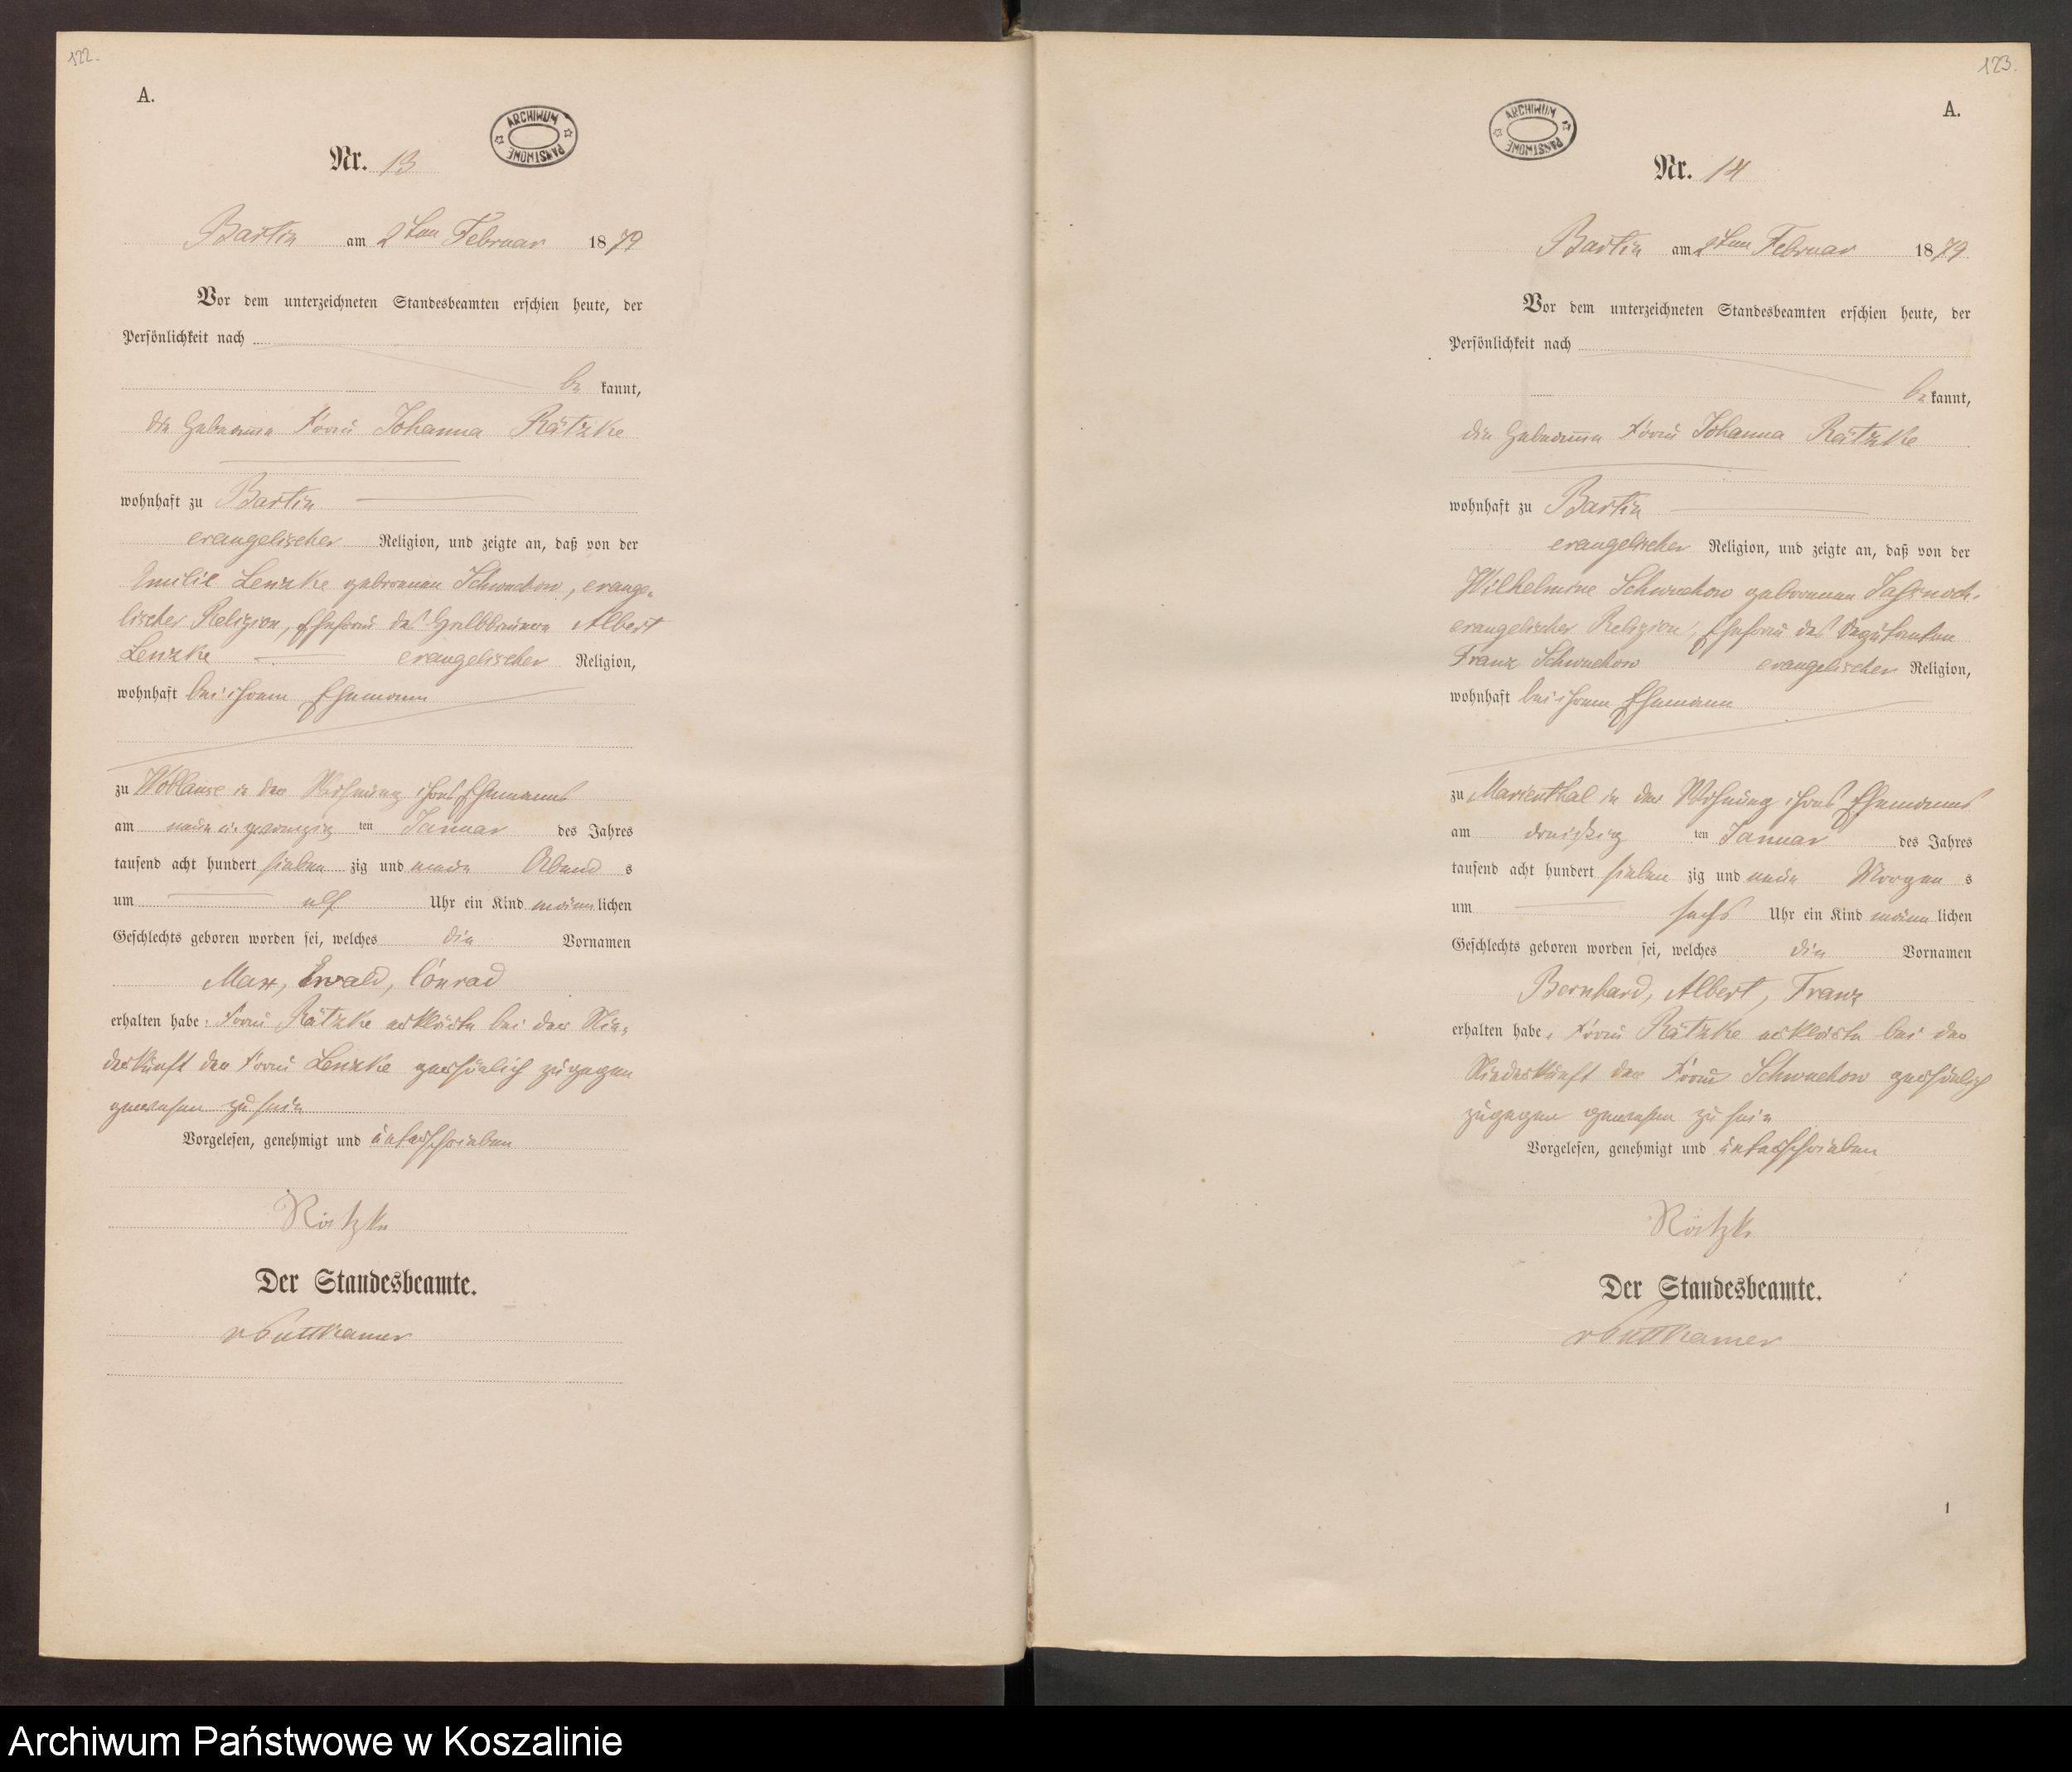 122.
A.
ARCHIWUM PAŃSTWOWE
Nr. 13
Bartin am 2ten Februar 1879
Vor dem unterzeichneten Standesbeamten erschien heute, der
Persönlichkeit nach
be kannt,
die Hebamme Frau Johanna Rätzke
wohnhaft zu Bartin
evangelischer Religion, und zeigte an, daß von der
Emilie Lenzke geborenen Schwuchow, evange-
lischer Religion, Ehefrau des Halbbauern Albert
Lenzke evangelischer Religion,
wohnhaft bei ihrem Ehemann
zu Woblanse in der Wohnung ihres Ehemanns
am neun u. zwanzig ten Januar des Jahres
tausend acht hundert sieben zig und neun Abend s
um elf Uhr ein Kind männlichen
Geschlechts geboren worden sei, welches die Vornamen
Max, Ewald, Conrad
erhalten habe: Frau Rätzke erklärte bei der Nie-
derkunft der Frau Lenzke persönlich zugegen
gewesen zu sein
Vorgelesen, genehmigt und unterschrieben
Rätzke
Der Standesbeamte.
v Puttkamer
123.
A.
ARCHIWUM PAŃSTWOWE
Nr. 14
Bartin am 2ten Februar 1879
Vor dem unterzeichneten Standesbeamten erschien heute, der
Persönlichkeit nach
be kannt,
die Hebamme Frau Johanna Rätzke
wohnhaft zu Bartin
evangelischer Religion, und zeigte an, daß von der
Wilhelmine Schwuchow geborenen
evangelischer Religion, Ehefrau des Deputanten
Franz Schwuchow evangelischer Religion,
wohnhaft bei ihrem Ehemann
zu Marienthal in der Wohnung ihres Ehemanns
am dreißig ten Januar des Jahres
tausend acht hundert sieben zig und neun Morgen s
um sechs Uhr ein Kind männ lichen
Geschlechts geboren worden sei, welches die Vornamen
Bernhard, Albert, Franz
erhalten habe, Frau Rätzke erklärte bei der
Niederkunft der Frau Schwuchow persönlich
zugegen gewesen zu sein
Vorgelesen, genehmigt und unterschrieben
Rätzke
Der Standesbeamte.
v Puttkamer
1
Archiwum Państwowe w Koszalinie